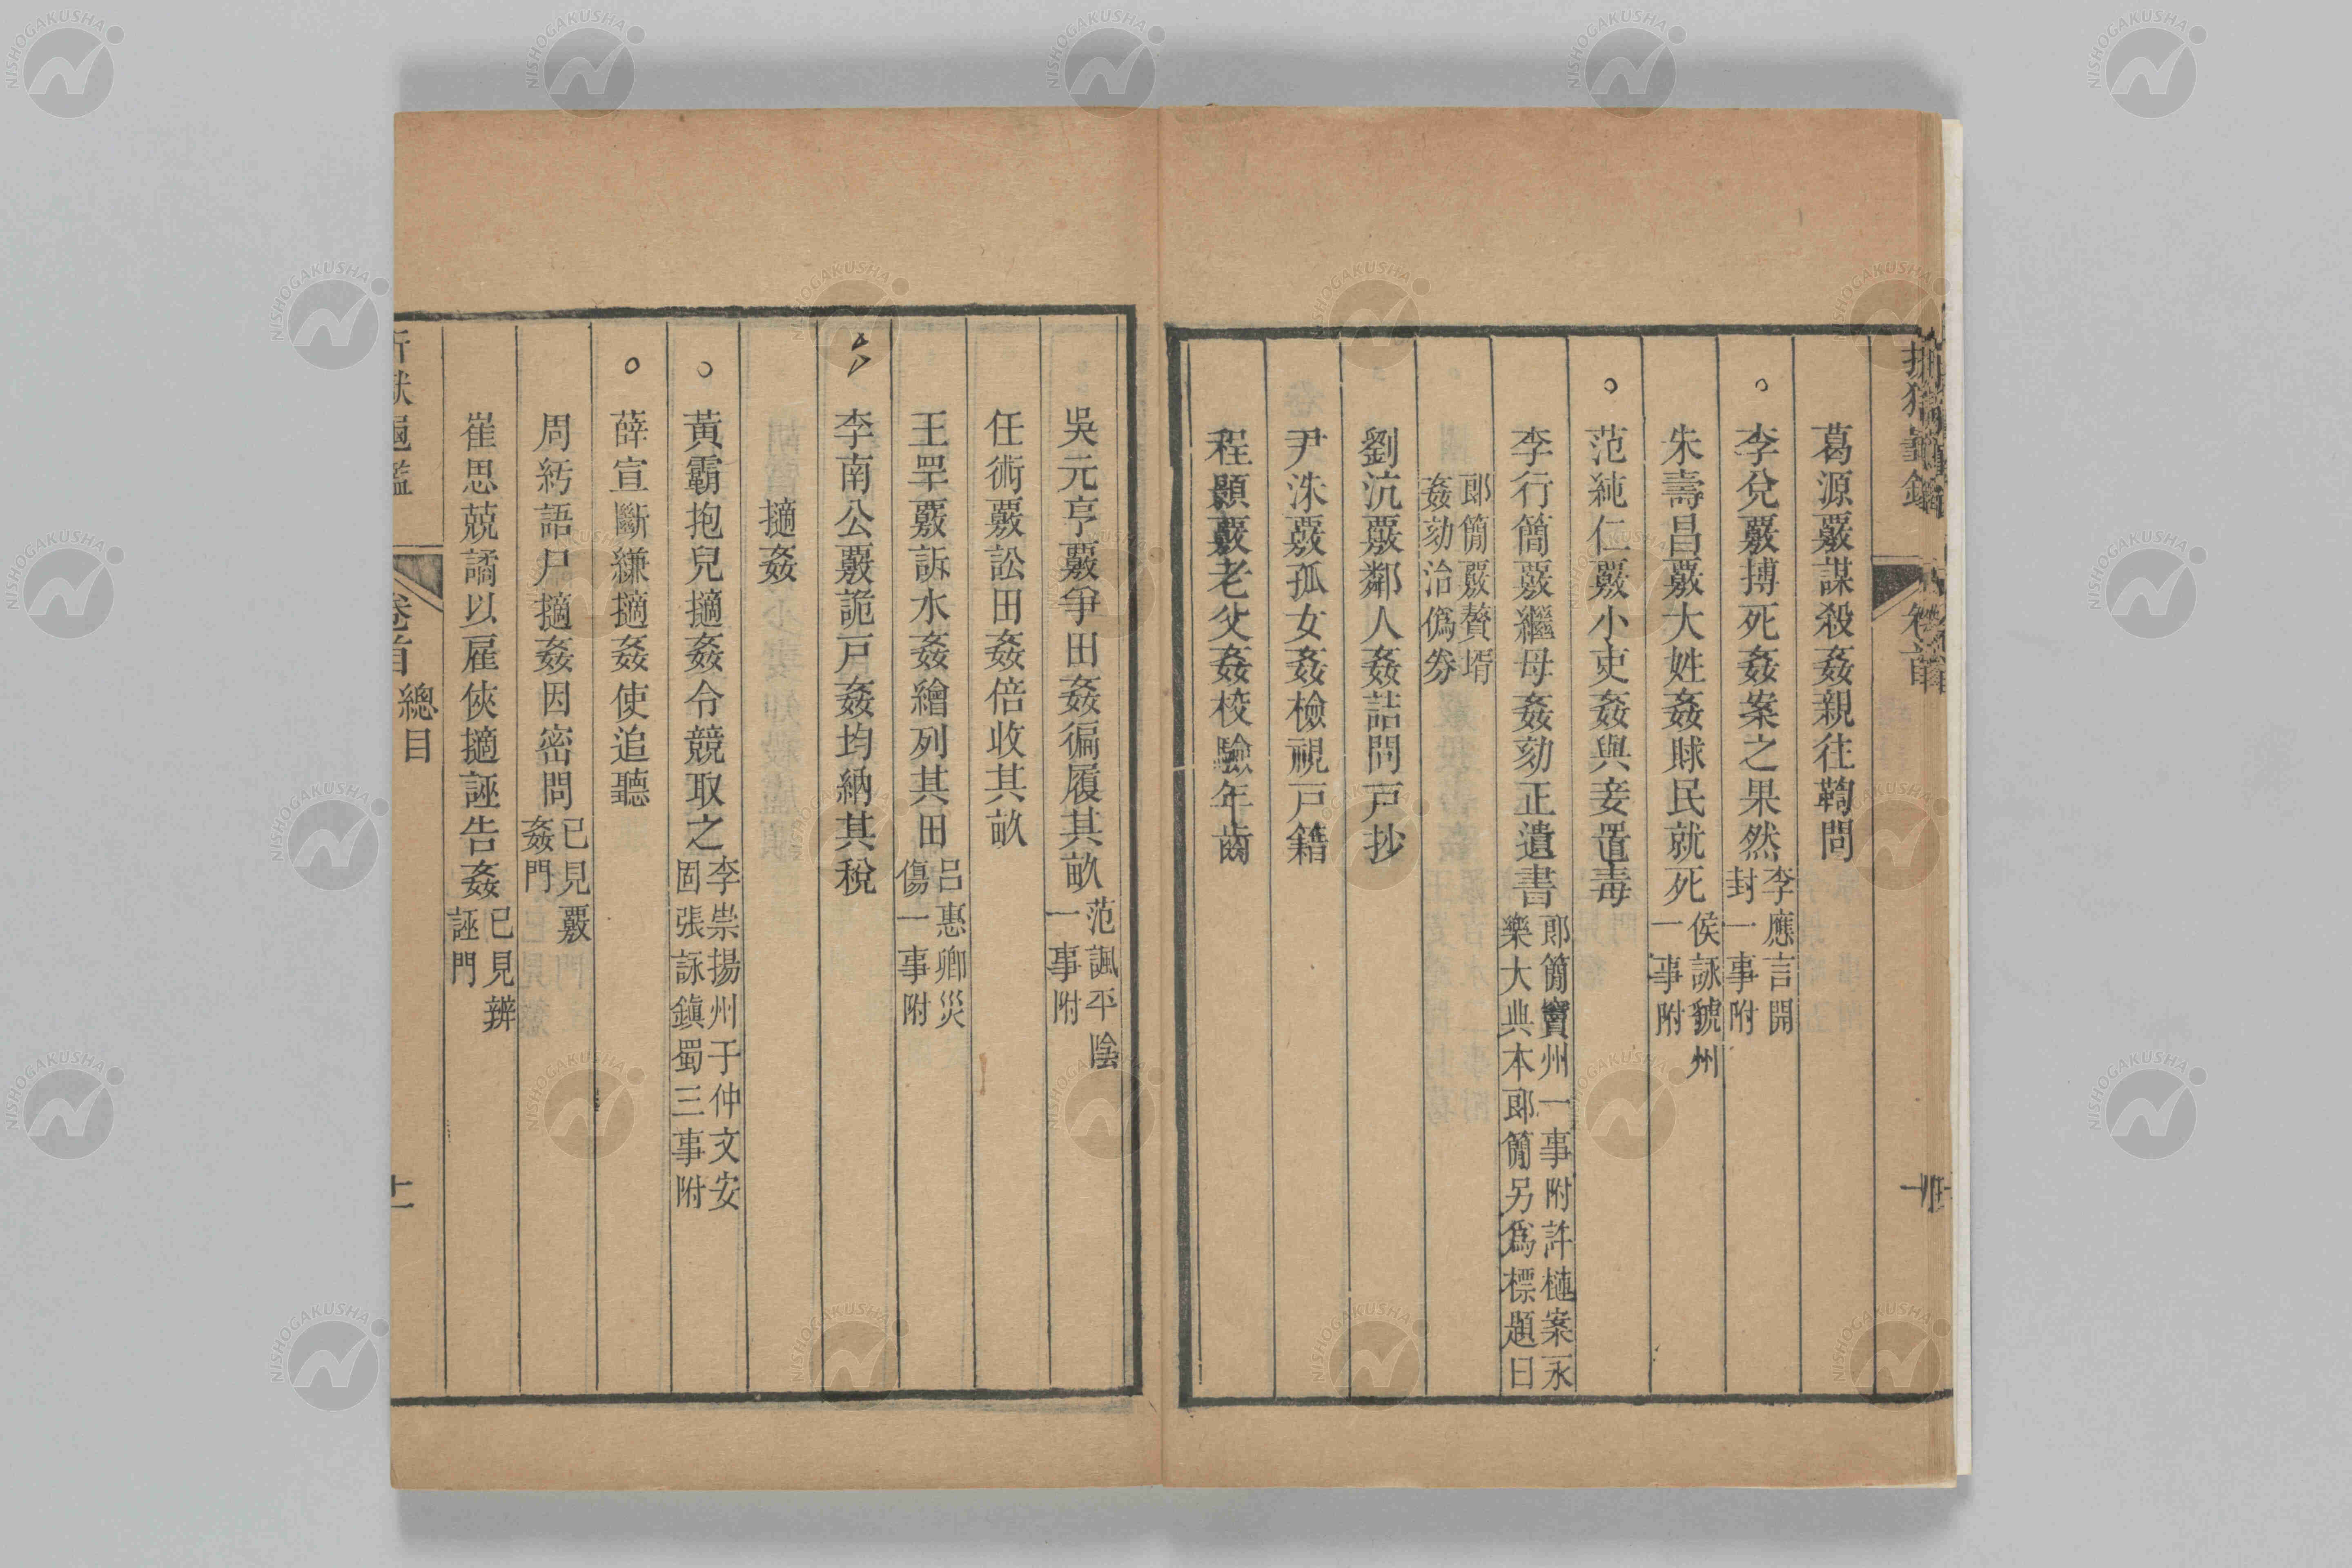 葛源覈謀殺姦親往鞫問
李兌覈摶死姦案之果然李應言開封一事附
朱壽昌覈大姓姦賕民就死侯詠虢州一事附
范純仁覈小吏姦與妾置毒
李行簡覈繼母姦劾正遺書郎簡竇州一事附許槤案永樂大典本郎簡另爲標題曰
郎簡覈贅壻姦劾治僞券
劉沆覈鄰人姦詰問戸抄
尹洙覈孤女姦檢視戸籍
程顥覈老父姦校驗年齒
吳元亨覈爭田姦徧履其畝范諷平陰一事附
任術覈訟田姦倍收其畝
王罕覈訴水姦繪列其田呂惠卿災傷一事附
李南公覈詭戸姦均納其稅
擿姦
黃霸抱兒擿姦令競取之李崇揚州于仲文安固張詠鎭蜀三事附
薛宣斷縑擿姦使追聽
周紆語尸擿姦因密問已見覈姦門
崔思兢譎以雇俠擿誣告姦已見辨誣門
折獄龜鑑 卷首 總目 十一
NISHOGAKUSHA